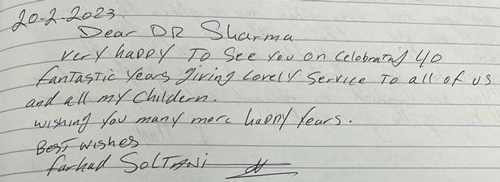 20-2-2023
Dear DR Sharma
very happy To See You on Celebrating 40
fanTasTic Years giving Lovely Service To all of us
and all my Childern.
wishing you many more happy Years.
BesT wishes
farhad SOLTANi